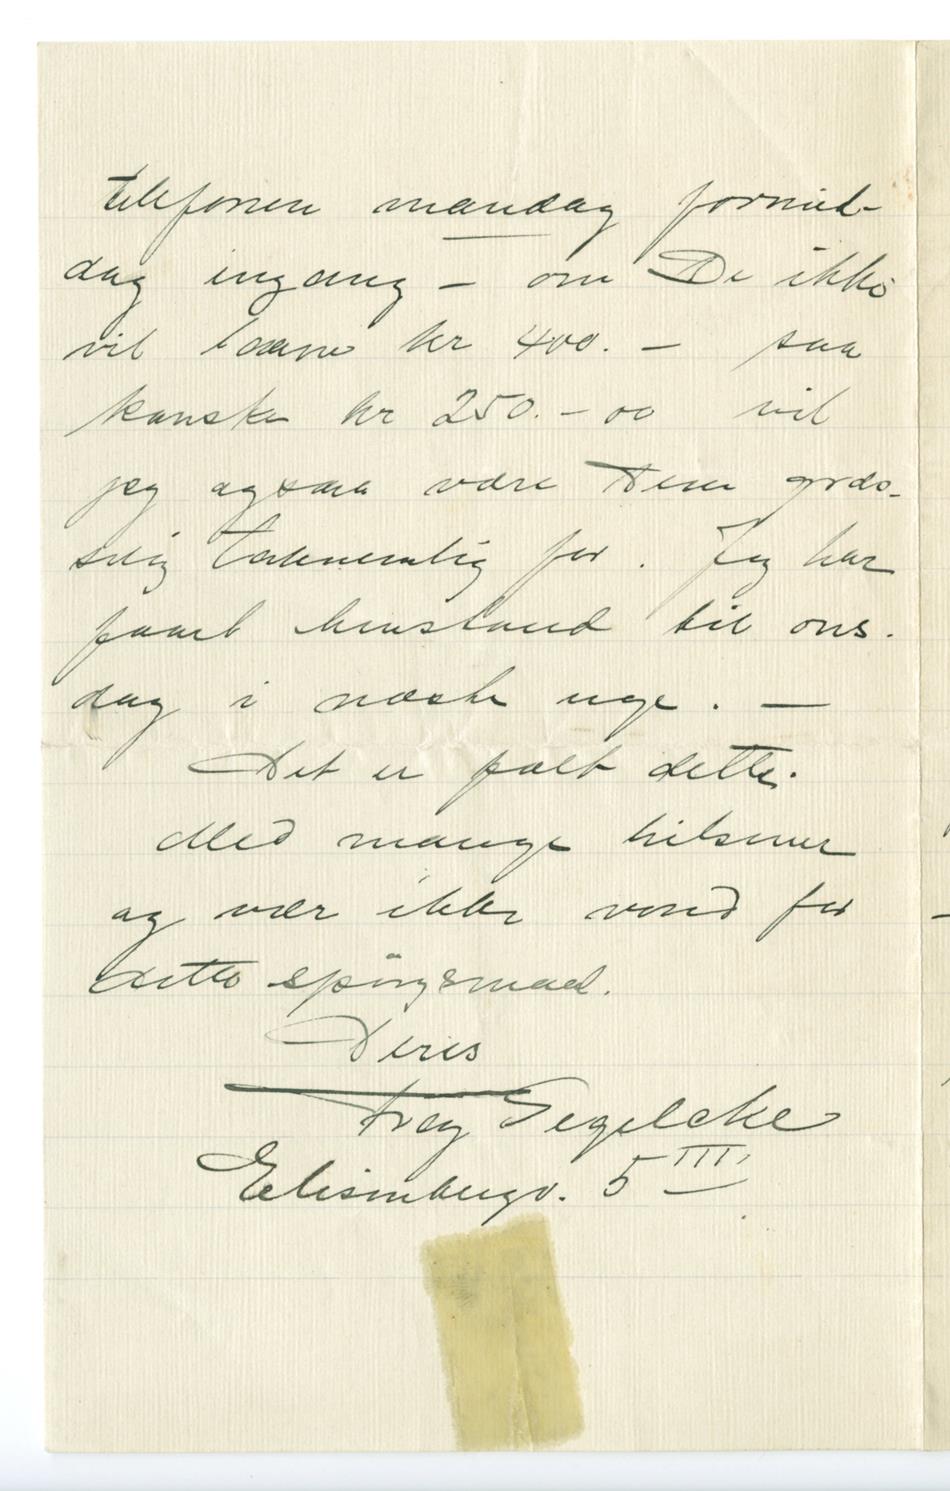 telefonen mandag formid-
dag ingang – om De ikke
vil laane kr 400. – saa
kanske kr 250. – oo vil
jeg ogsaa være Dem græs-
selig taknemlig for. Jeg har
faaet henstand til ons.
dag i næste uge. –
Det er fælt dette.
Med mange hilsener
og vær ikke vond for
dette spörgsmaal.
Deres
Segelcke
Elisenbergv. 5 III,